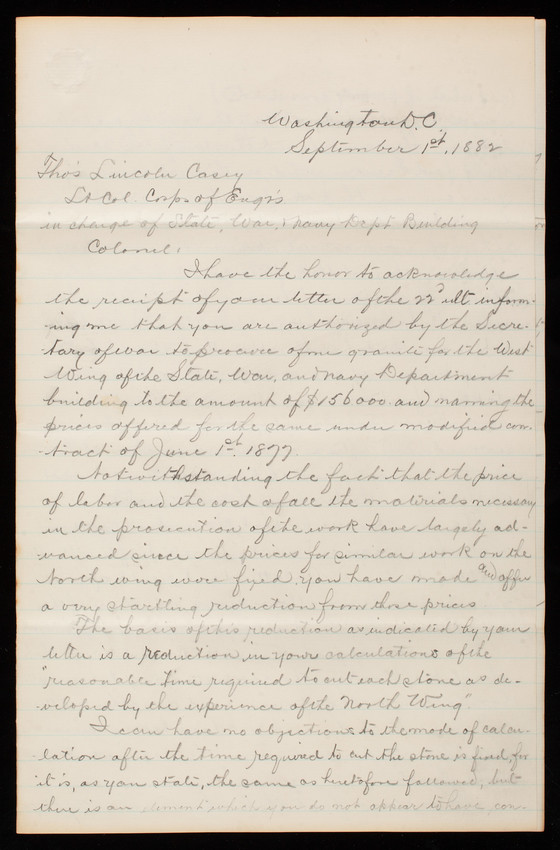 Washington D.C.
September 1st, 1882
Tho's Lincoln Casey
Lt Col. Corps of Engr's
in charge of State, War, & Navy Dept Building
Colonel,
I have the honor to acknowledge
the receipt of your letter of the 22d ult inform-
-ing me that you are authorized by the Secre-
tary of War to procure of me granite for the West
Wing of the State, War, and Navy Department
building to the amount of $156000. and naming the
prices offered for the same under modified con-
tract of June 1st. 1877.
Notwithstanding the fact that the price
of labor and the cost of all the materials necessary
in the prosecution of the work have largely ad-
vanced since the prices for similar work on the
North wing were fixed, you have made and offer
a very startling reduction from those prices
The basis of this reduction as indicated by your
letter is a reduction, in your calculations of the
"reasonable time required to cut each stone as de-
veloped by the experience of the North Wing".
I can have no objections to the mode of calcu-
-lation after the time required to cut the stone is fixed, for
it is, as you state, the same as heretofore followed, but
there is an element which you do not appear to have con-